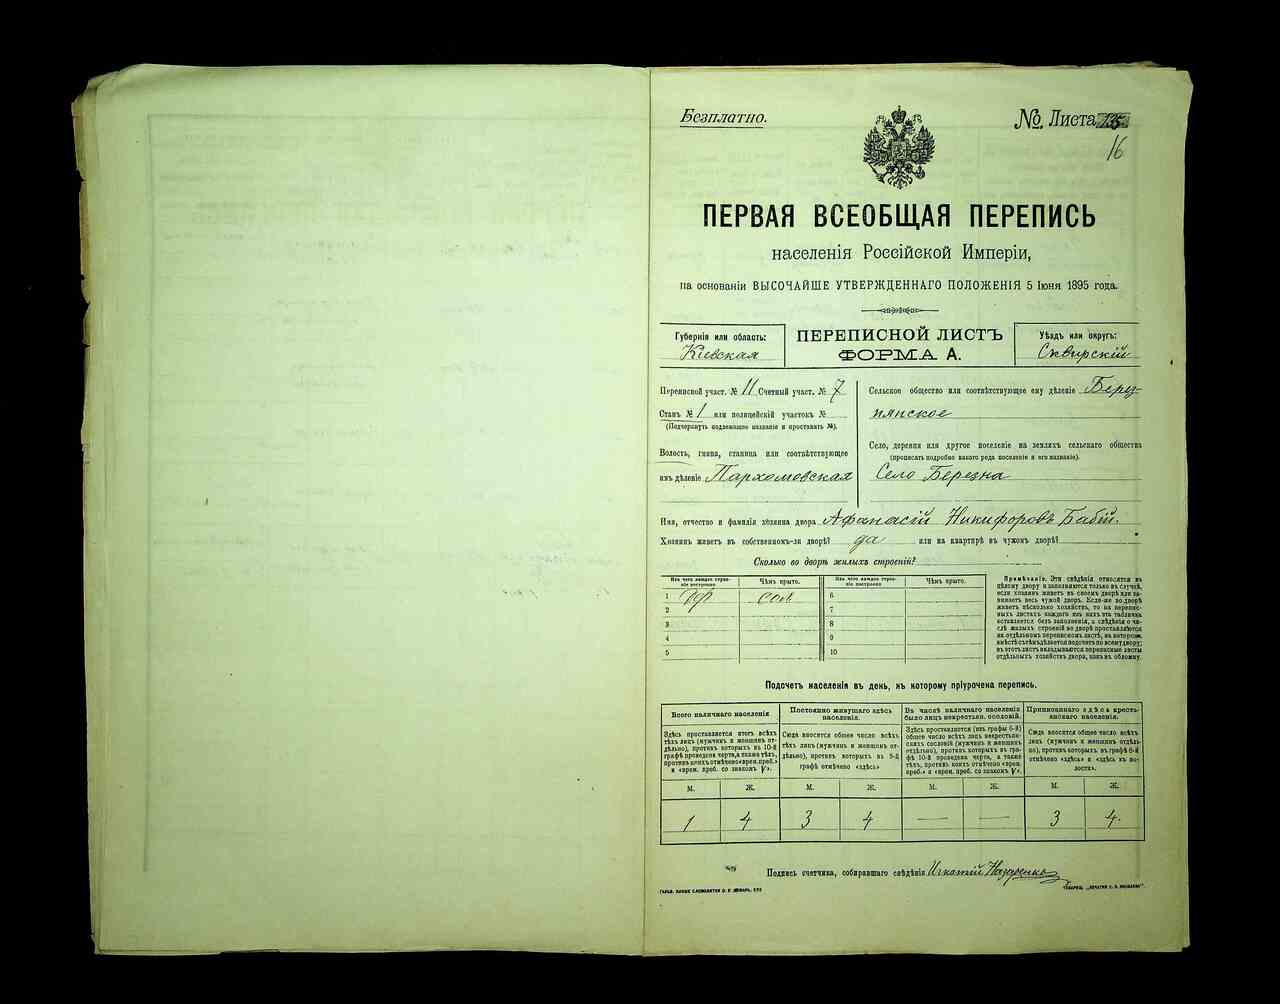 Безплатно.
№ Листа 135
16
ПЕРВАЯ ВСЕОБЩАЯ ПЕРЕПИСЬ
населенія Россійской Имперіи,
на основаніи ВЫСОЧАЙШЕ УТВЕРЖДЕННАГО ПОЛОЖЕНІЯ 5 Іюня 1895 года.
Губернія или область:
Кіевская
ПЕРЕПИСНОЙ ЛИСТЪ
ФОРМА А.
Уѣздъ или округъ:
Сквирскій
Переписной участ. № 11 Счетный участ. № 7
Станъ № 1 или полицейскій участокъ №
(Подчеркнуть подлежащее названіе и проставить №).
Волость, гмина, станица или соотвѣтствующее
имъ дѣленіе Пархомовская
Сельское общество или соотвѣтствующее ему дѣленіе Берез-
нянское
Село, деревня или другое поселеніе на земляхъ сельскаго общества
(прописать подробно какого рода поселеніе и его названіе).
Село Березна
Имя, отчество и фамилія хозяина двора Афанасій Никифоровъ Бабій.
Хозяинъ живетъ въ собственномъ-ли дворѣ? да или на квартирѣ въ чужомъ дворѣ?
Сколько во дворѣ жилыхъ строеній?
Изъ чего каждое строе-
ніе построено
Чѣмъ крыто.
Изъ чего каждое строе-
ніе построено
Чѣмъ крыто.
1 сол 6
2 7
3 8
4 9
5 10
Примѣчаніе. Эти свѣдѣнія относятся къ
цѣлому двору и заполняются только въ случаѣ,
если хозяинъ живетъ въ своемъ дворѣ или за-
нимаетъ весь чужой дворъ. Если-же во дворѣ
живетъ нѣсколько хозяйствъ, то на перепис-
ныхъ листахъ каждаго изъ нихъ эта табличка
оставляется безъ заполненія, а свѣдѣнія о чи-
слѣ жилыхъ строеній во дворѣ проставляются
на отдѣльномъ переписномъ листѣ, на которомъ
вмѣстѣ съ тѣмъ дѣлается подсчетъ по всему двору;
въ этотъ листъ вкладываются переписные листы
отдѣльныхъ хозяйствъ двора, какъ въ обложку.
Подсчетъ населенія въ день, къ которому пріурочена перепись.
Всего наличнаго населенія
Здѣсь проставляется итогъ всѣхъ
тѣхъ лицъ (мужчинъ и женщинъ от-
дѣльно), противъ которыхъ въ 10-й
графѣ проведена черта, а также тѣхъ,
противъ коихъ отмѣчено «врем. преб.»
и «врем. преб. со знакомъ V».
Постоянно живущаго здѣсь
населенія.
Сюда вносится общее число всѣхъ
тѣхъ лицъ (мужчинъ и женщинъ от-
дѣльно), противъ которыхъ въ 9-й
графѣ отмѣчено «здѣсь»
Въ числѣ наличнаго населенія
было лицъ некрестьян. сословій.
Здѣсь проставляется (изъ графы 6-й)
общее число всѣхъ лицъ некрестьян-
скихъ сословій (мужчинъ и женщинъ
отдѣльно), противъ которыхъ въ гра-
фѣ 10-й проведена черта, а также
тѣхъ, противъ коихъ отмѣчено «врем.
преб.» и «врем. преб. со знакомъ V».
Приписаннаго здѣсь кресть-
янскаго населенія.
Сюда вносится общее число всѣхъ
лицъ (мужчинъ и женщинъ отдѣль-
но), противъ которыхъ въ графѣ 8-й
отмѣчено «здѣсь» и «здѣсь въ во-
лости».
М. Ж. М. Ж. М. Ж. М. Ж.
1 4 3 4 — — 3 4
Подпись счетчика, собиравшаго свѣдѣнія Игнатій Назаренко